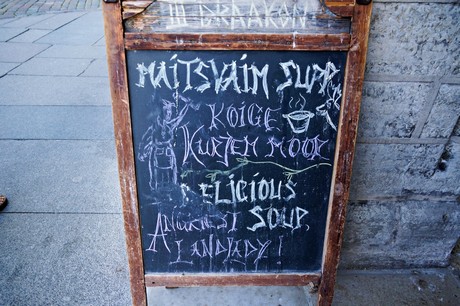 III DRAAKON
MAITSVAIM SUPP
KOIGE
KURJEM MOOR
RELIGIOUS
SOUP
ANGRIEST
LANDLADY!